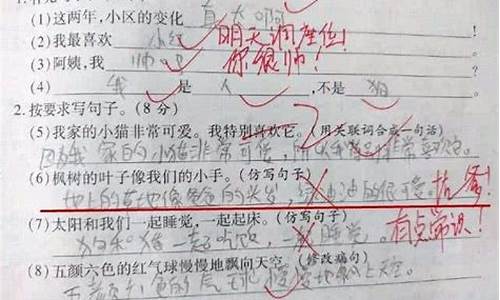 (1)这两年,小区的变化 真大啊
(2)我最喜欢 小红 明天调座位!
(3)阿姨,我 帅吧 你很帅!
(4) 我 是 人 ,不是 狗
2.按要求写句子。(8 分)
(5)我家的小猫非常可爱。我特别喜欢它。(用关联词合成一句话)
因为我家的小猫非常可爱,所以我特别非常喜欢它。
(6)枫树的叶子像我们的小手。(仿写句子)
地上的草地像爸爸的头发,绿油油的很可爱。 抗争!
(7)太阳和我们一起睡觉,一起起床。(仿写句子)
狗和猪一起吃饭,一起睡觉。 有点常识!
(8)五颜六色的红气球慢慢地飘向天空。(修改病句)
五颜六色的气球慢慢地飘上天空。